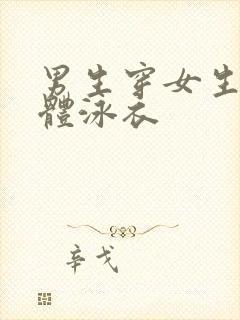 男生穿女生
體泳衣
辛戈